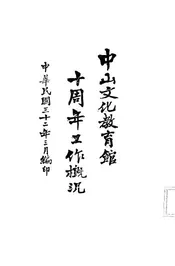 中山文化教育館
十周年工作概況
中華民國三十二年三月編印